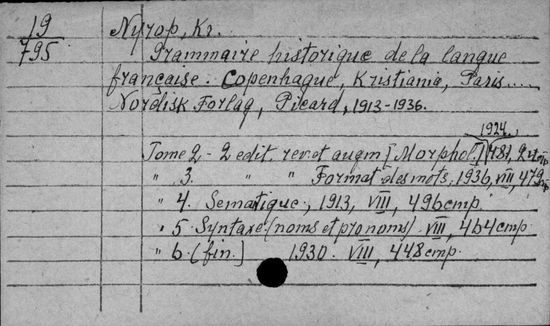 19
795
Nyrop, Kr.
Grammaire historique de la langue
française. Copenhague, Kristiania, Paris....
Nordisk Forlag, Picard, 1913-1936.
1924.
Tome 2 - 2 edit. rev. et augm [Morphol.]
" 3. " " Format. des mots, 1936, VIII, 479
" 4. Sematique, 1913, VIII, 496 cmp.
" 5. Syntaxe (noms et pronoms). VIII, 464 cmp
" 6. (fin.] 1930. VIII, 448 cmp.